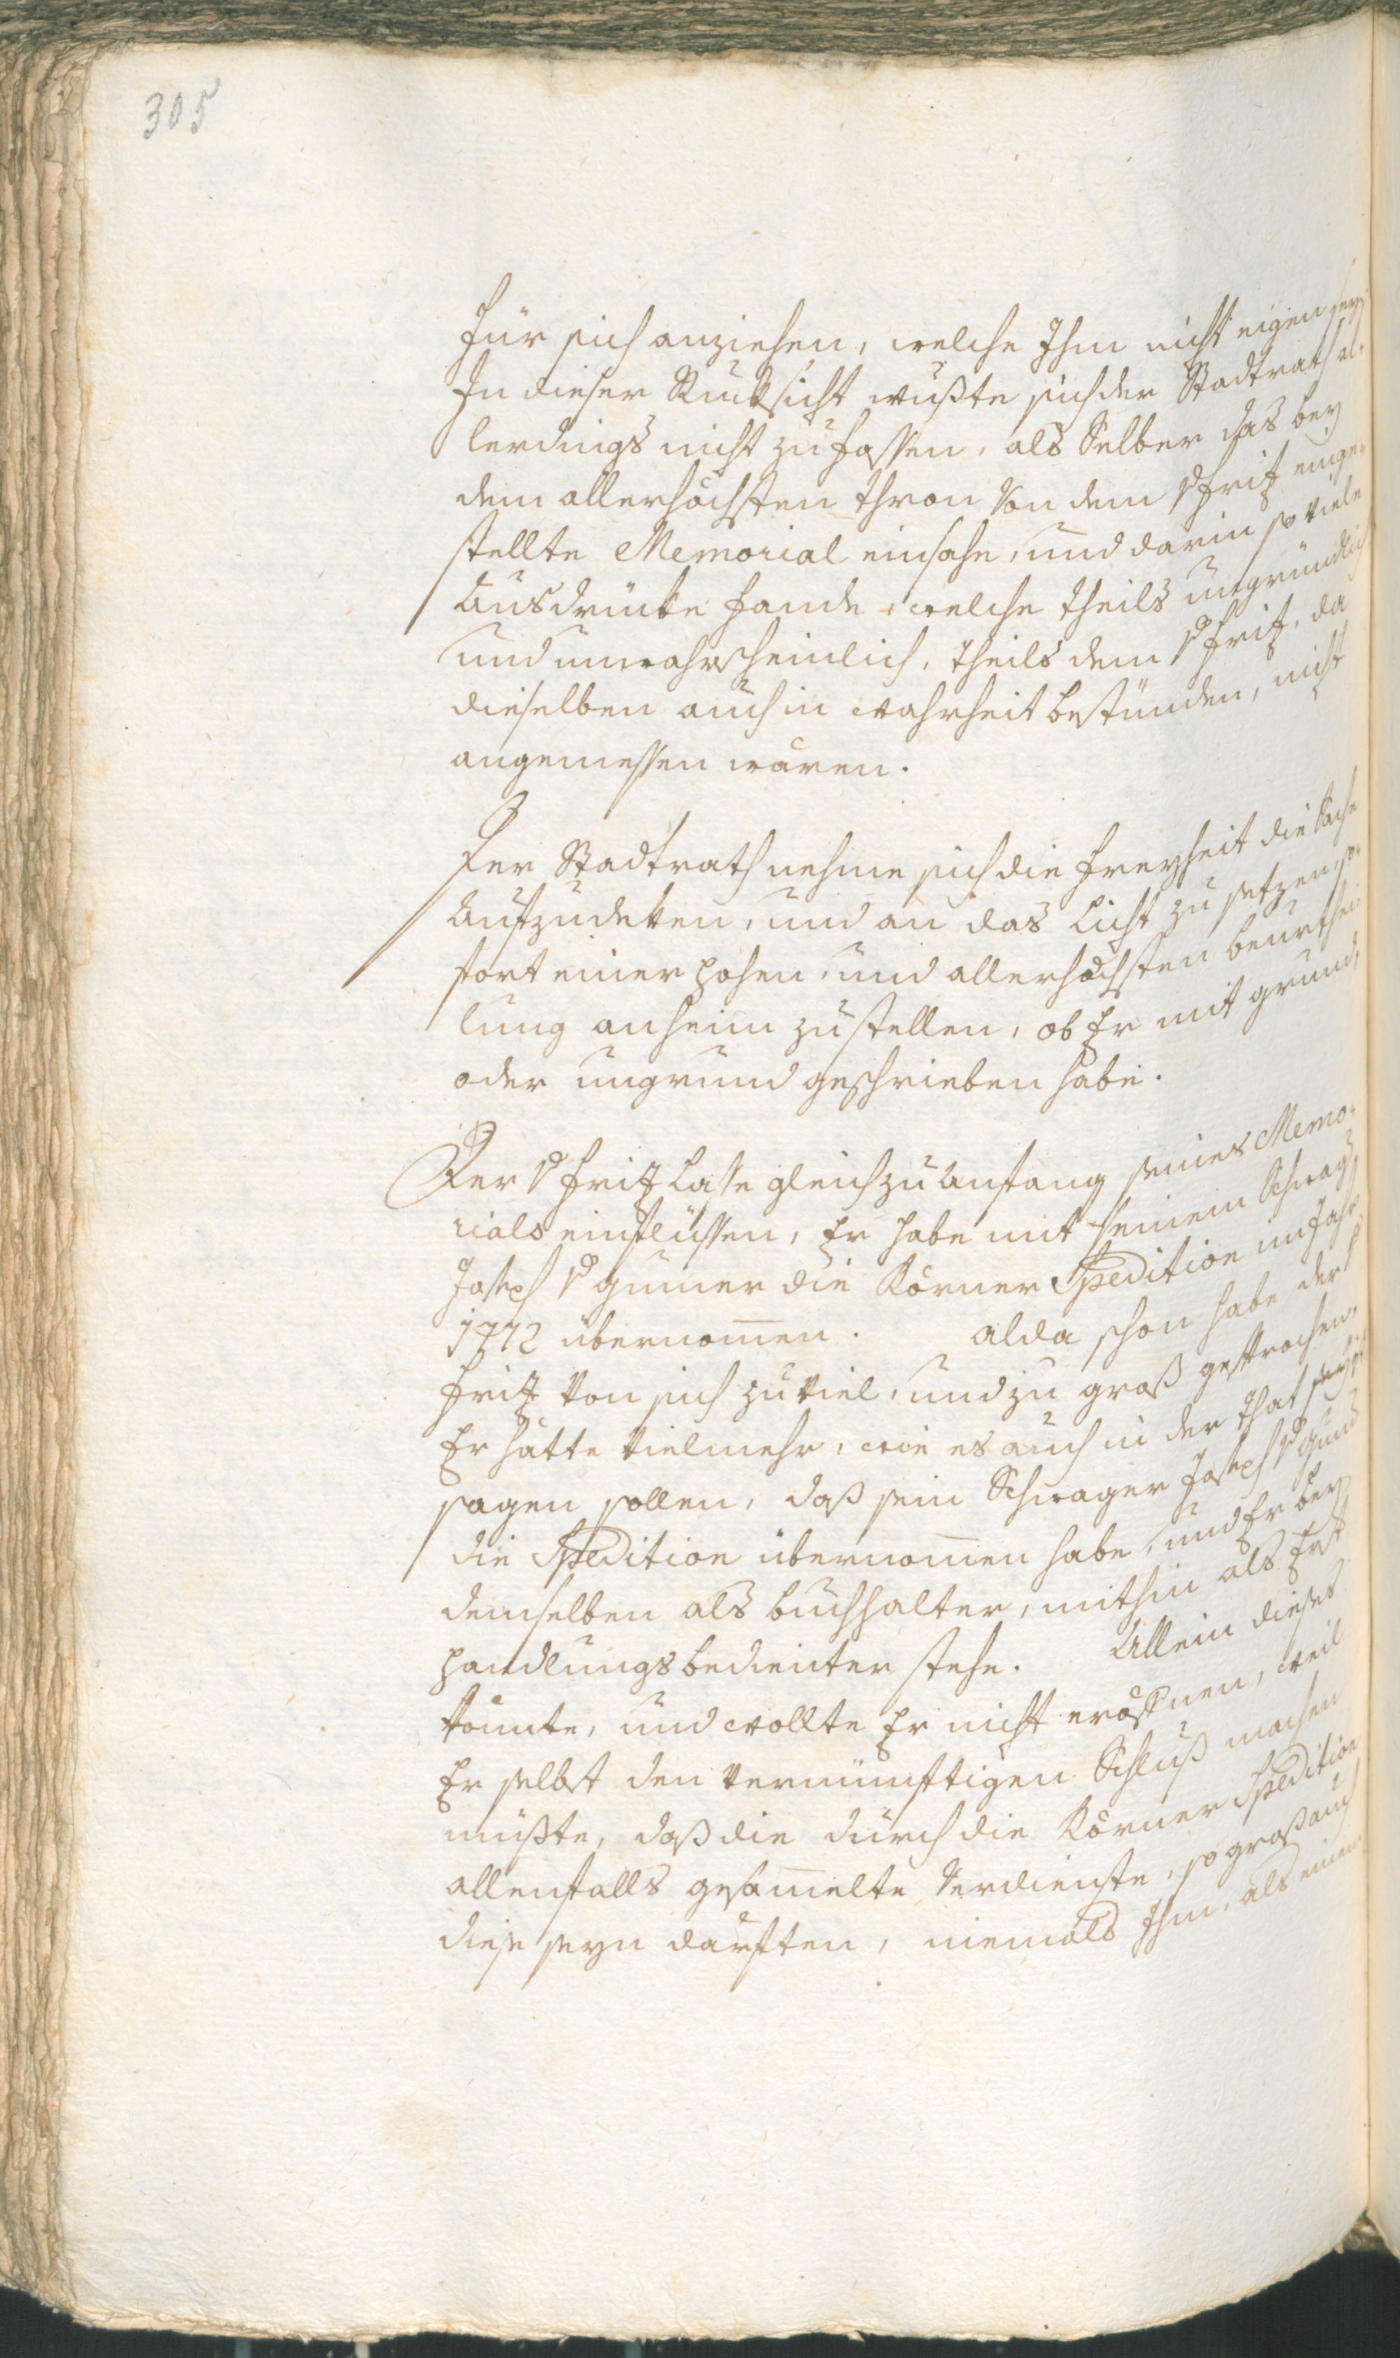 305
für sich anziehen, welche Ihm nicht eigen sey
In dieser Rucksicht wußte sich der Stadtrath al-
lerdings nicht zu fassen, als Selber das bey
dem allerhöchsten thron von dem v Fritz einge-
stellte Memorial einsahe, und darin so viele
Ausdrüke fande, welche theils ungründlich
und unwahrscheinlich, theils dem v Fritz, da
dieselben auch in wahrheit bestünden, nicht
angemessen wären.
Der Stadtrath nehme sich die freyheit die Sache
Aufzudeken, und an das Licht zu setzen, so-
fort einer hohen, und allerhöchsten beurthei-
lung anheim zustellen, ob Er mit grund,
oder ungrund geschrieben habe.
Der v Fritz Lasse gleich zu Anfang seines Memo-
rials einflüssen, Er habe mit seinem Schwag
Joseph v Gumer die Körner Spedition im Jahr
1772 übernom̄en. alda schon habe der v
Fritz von sich zu viel, und zu groß gesprochen,
Er hätte vielmehr, wie es auch in der that seyt
sagen sollen, daß sein Schwager Joseph v Gum
die Spedition übernom̄en habe, und Er bey
demselben als buchhalter, mithin als Erst
handlungsbedienter stehe. Allein dieses
konnte, und wollte Er nicht eröfnen, weil
Er selbst den vernünftigen Schluß machen
müßte, daß die durch die Körner Spedition
allenfalls gesam̄elte Verdienste, so groß auch
diese seyn därften, niemals Ihm, als einem